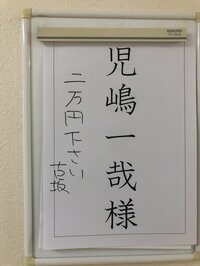 児嶋一哉様
二万円下さい
古坂